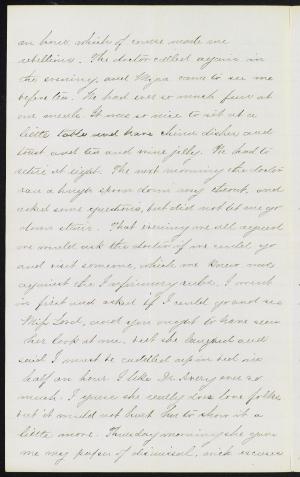 an hour which of course made me
rebellious. The doctor called again in
the evening, and Myra came to see me
before tea. We had ever so much fun at
our meals. It was so nice to sit at a
little table and have china dishes and
toast and tea and nice jelly. We had to
retire at eight. The next morning the doctor
ran a huge spoon down my throat, and
asked some questions, but did not let me go
down stairs. That evening we all agreed
we would ask the doctor if we could go
and visit someone, which we knew was
against the Infirmary rules. I went
in first and asked if I could go and see
Miss Lord, and you ought to have seen
her look at me, but she laughed and
said I must be cuddled up in bed in
half an hour. I like Dr. Avery ever so
much. I guess she really does love folks,
but it would not hurt her to show it a
little more. Thursday morning she gave
me my paper of dismissal, sick excuses